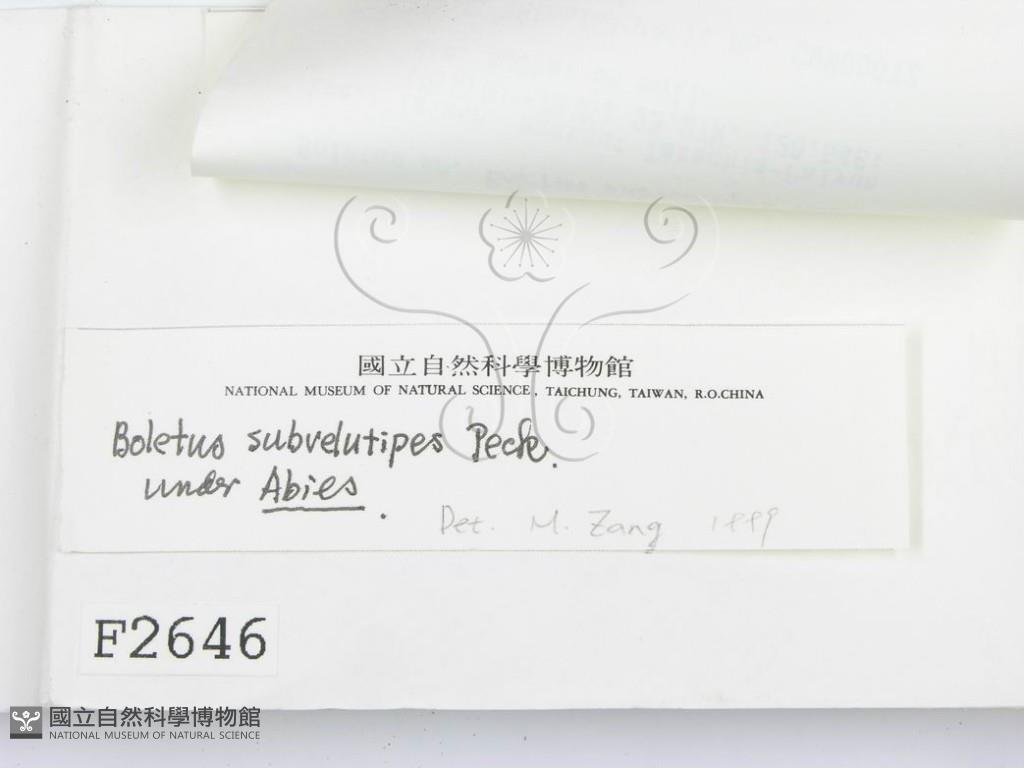 國立自然科學博物館
NATIONAL MUSEUM OF NATURAL SCIENCE, TAICHUNG, TAIWAN, R.O.CHINA
Boletus subvelutipes Peck.
under Abies.
Det. M. Zang 1999
F2646
國立自然科學博物館
NATIONAL MUSEUM OF NATURAL SCIENCE